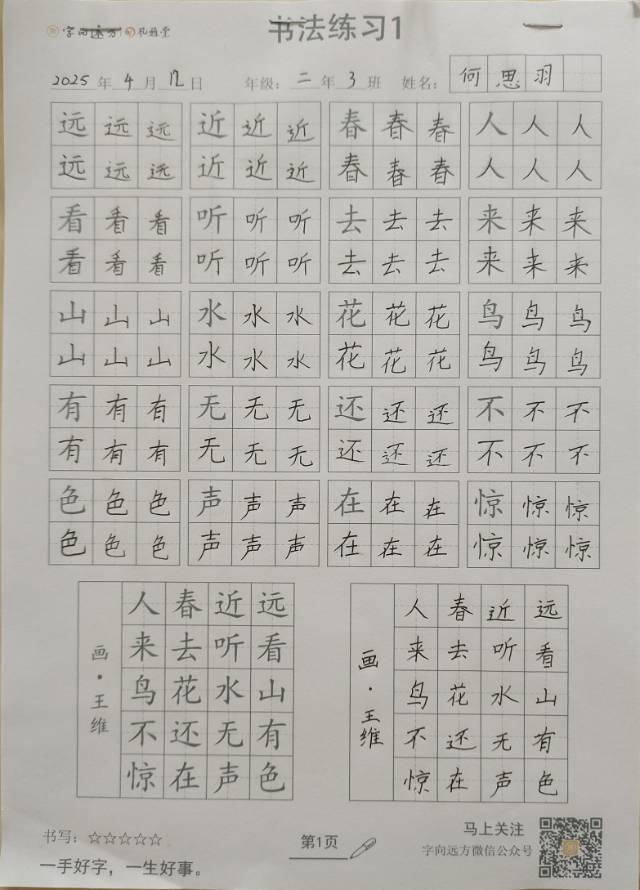 字向远方 礼籍堂
书法练习1
2025年4月12日 年级:二年3班 姓名:何思羽
远远远 近近近 春春春 人人人
远远远 近近近 春春春 人人人
看看看 听听听 去去去 来来来
看看看 听听听 去去去 来来来
山山山 水水水 花花花 鸟鸟鸟
山山山 水水水 花花花 鸟鸟鸟
有有有 无无无 还还还 不不不
有有有 无无无 还还还 不不不
色色色 声声声 在在在 惊惊惊
色色色 声声声 在在在 惊惊惊
远看山有色
近听水无声
春去花还在
人来鸟不惊
画·王维
远看山有色
近听水无声
春去花还在
人来鸟不惊
画·王维
书写:☆☆☆☆☆
一手好字,一生好事。
第1页
马上关注
字向远方微信公众号